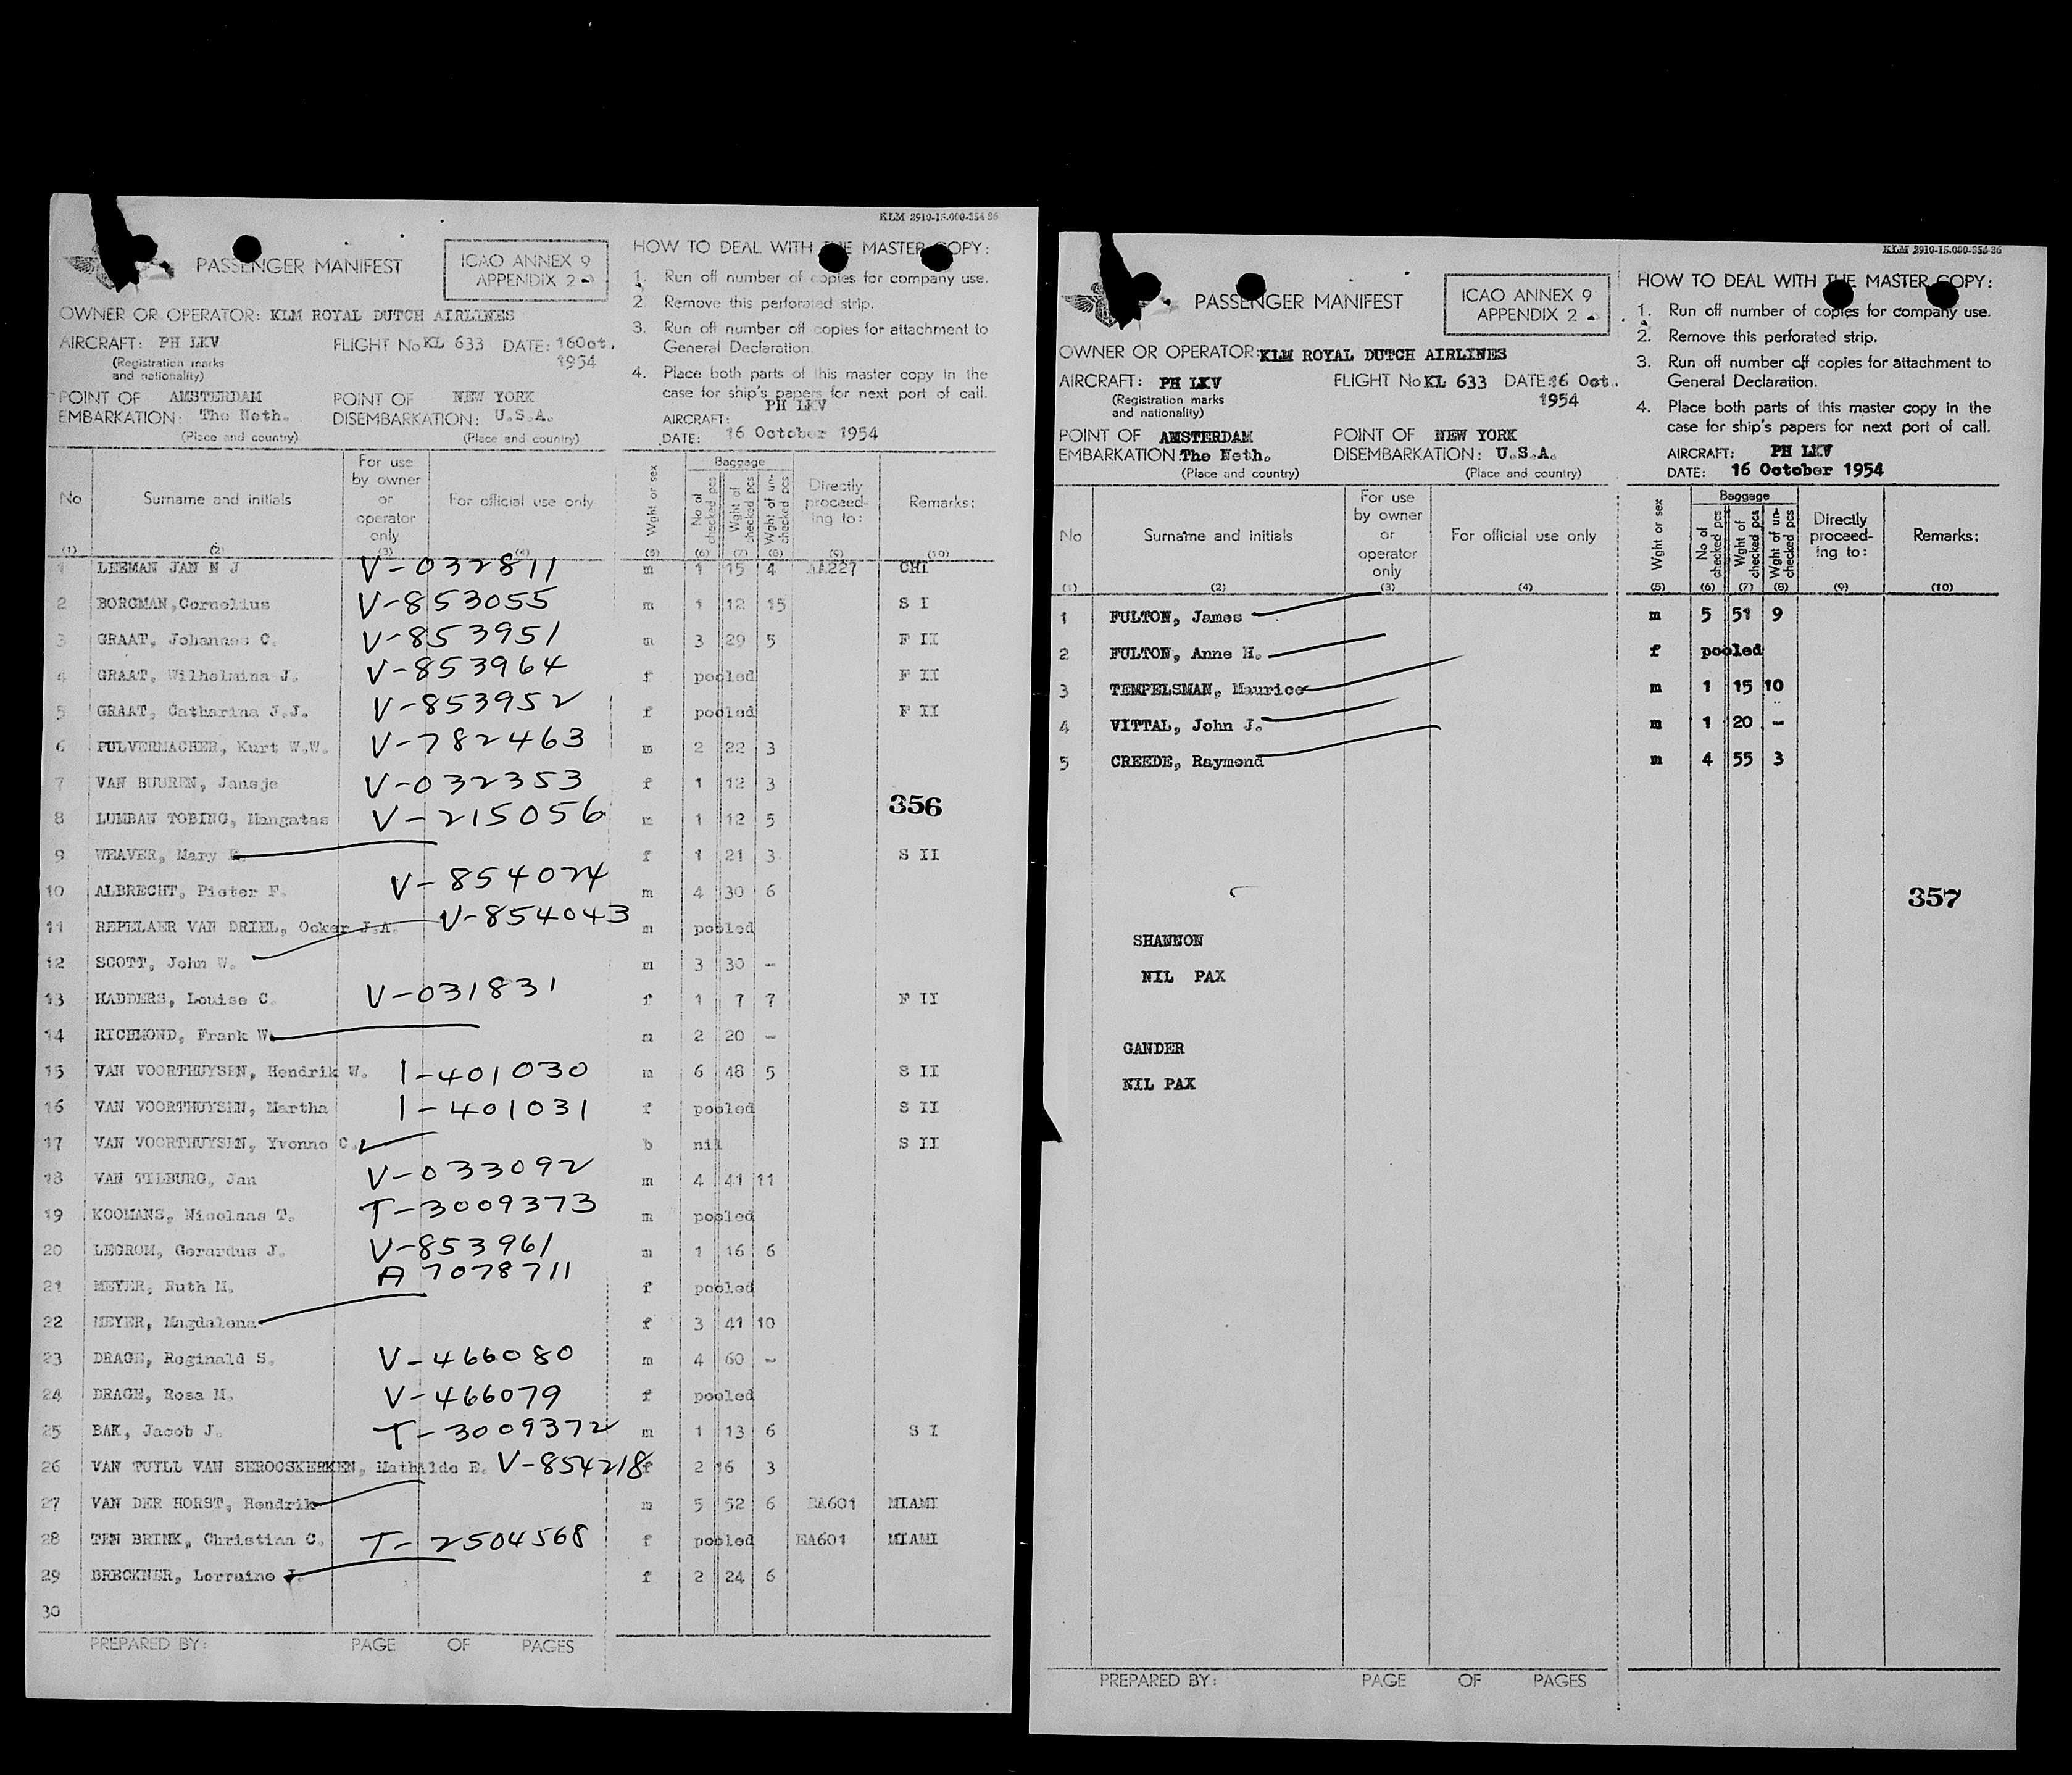 KLM 2910-15.000-354 36
PASSENGER MANIFEST
ICAO ANNEX 9
APPENDIX 2
OWNER OR OPERATOR: KLM ROYAL DUTCH AIRLINES
AIRCRAFT: PH LKV FLIGHT No KL 633 DATE: 16Oct. 1954
(Registration marks
and nationality)
POINT OF EMBARKATION: AMSTERDAM The Neth. POINT OF DISEMBARKATION: NEW YORK U.S.A.
(Place and country) (Place and country)
HOW TO DEAL WITH THE MASTER COPY:
1. Run off number of copies for company use.
2. Remove this perforated strip.
3. Run off number off copies for attachment to
General Declaration.
4. Place both parts of this master copy in the
case for ship's papers for next port of call.
AIRCRAFT: PH LKV
DATE: 16 October 1954
No Surname and initials For use by owner or operator only For official use only Wght or sex Baggage No of checked pcs Wght of checked pcs Wght of un-checked pcs Directly proceed-ing to: Remarks:
(1) (2) (3) (4) (5) (6) (7) (8) (9) (10)
1 LEEMAN JAN N J V-032811 m 1 15 4 AA227 CHI
2 BORGMAN,Cornelius V-853055 m 1 12 15 S I
3 GRAAT, Johannes C. V-853951 m 3 29 5 F II
4 GRAAT, Wilhelmina J. V-853964 f pooled F II
5 GRAAT, Catharina J.J. V-853952 f pooled F II
6 PULVERMACHER, Kurt W.W. V-782463 m 2 22 3
7 VAN BUUREN, Jansje V-032353 f 1 12 3
356
8 LUMBAN TOBING, Mangatas V-215056 m 1 12 5
9 WEAVER, Mary E. f 1 21 3 S II
10 ALBRECHT, Pieter F. V-854024 m 4 30 6
11 REPELAER VAN DRIEL, Ocker J.A. V-854043 m pooled
12 SCOTT, John W. m 3 30 -
13 HADDERS, Louise C. V-031831 f 1 7 7 F II
14 RICHMOND, Frank W. m 2 20 -
15 VAN VOORTHUYSEN, Hendrik W. I-401030 m 6 48 5 S II
16 VAN VOORTHUYSEN, Martha I-401031 f pooled S II
17 VAN VOORTHUYSEN, Yvonne C. b nil S II
18 VAN TILBURG, Jan V-033092 m 4 41 11
19 KOOMANS, Nicolaas T. T-3009373 m pooled
20 LEGROM, Gerardus J. V-853961 m 1 16 6
21 MEYER, Ruth M. A 7078711 f pooled
22 MEYER, Magdalena f 3 41 10
23 DRAGE, Reginald S. V-466080 m 4 60 -
24 DRAGE, Rosa M. V-466079 f pooled
25 BAK, Jacob J. T-3009372 m 1 13 6 S I
26 VAN TUYLL VAN SEROOSKERKEN, Mathilde E. V-854218 f 2 16 3
27 VAN DER HORST, Hendrik m 5 52 6 EA601 MIAMI
28 TEN BRINK, Christian C. T-2504568 f pooled EA601 MIAMI
29 BRECKNER, Lorraine J. f 2 24 6
30
PREPARED BY: PAGE OF PAGES
KLM 2910-15.000-354 36
PASSENGER MANIFEST
ICAO ANNEX 9
APPENDIX 2
OWNER OR OPERATOR: KLM ROYAL DUTCH AIRLINES
AIRCRAFT: PH LKV FLIGHT No KL 633 DATE: 16 Oct. 1954
(Registration marks
and nationality)
POINT OF EMBARKATION: AMSTERDAM The Neth. POINT OF DISEMBARKATION: NEW YORK U.S.A.
(Place and country) (Place and country)
HOW TO DEAL WITH THE MASTER COPY:
1. Run off number of copies for company use.
2. Remove this perforated strip.
3. Run off number off copies for attachment to
General Declaration.
4. Place both parts of this master copy in the
case for ship's papers for next port of call.
AIRCRAFT: PH LKV
DATE: 16 October 1954
No Surname and initials For use by owner or operator only For official use only Wght or sex Baggage No of checked pcs Wght of checked pcs Wght of un-checked pcs Directly proceed-ing to: Remarks:
(1) (2) (3) (4) (5) (6) (7) (8) (9) (10)
1 FULTON, James m 5 51 9
2 FULTON, Anne H. f pooled
3 TEMPELSMAN, Maurice m 1 15 10
4 VITTAL, John J. m 1 20 -
5 CREEDE, Raymond m 4 55 3
357
SHANNON
NIL PAX
GANDER
NIL PAX
PREPARED BY: PAGE OF PAGES